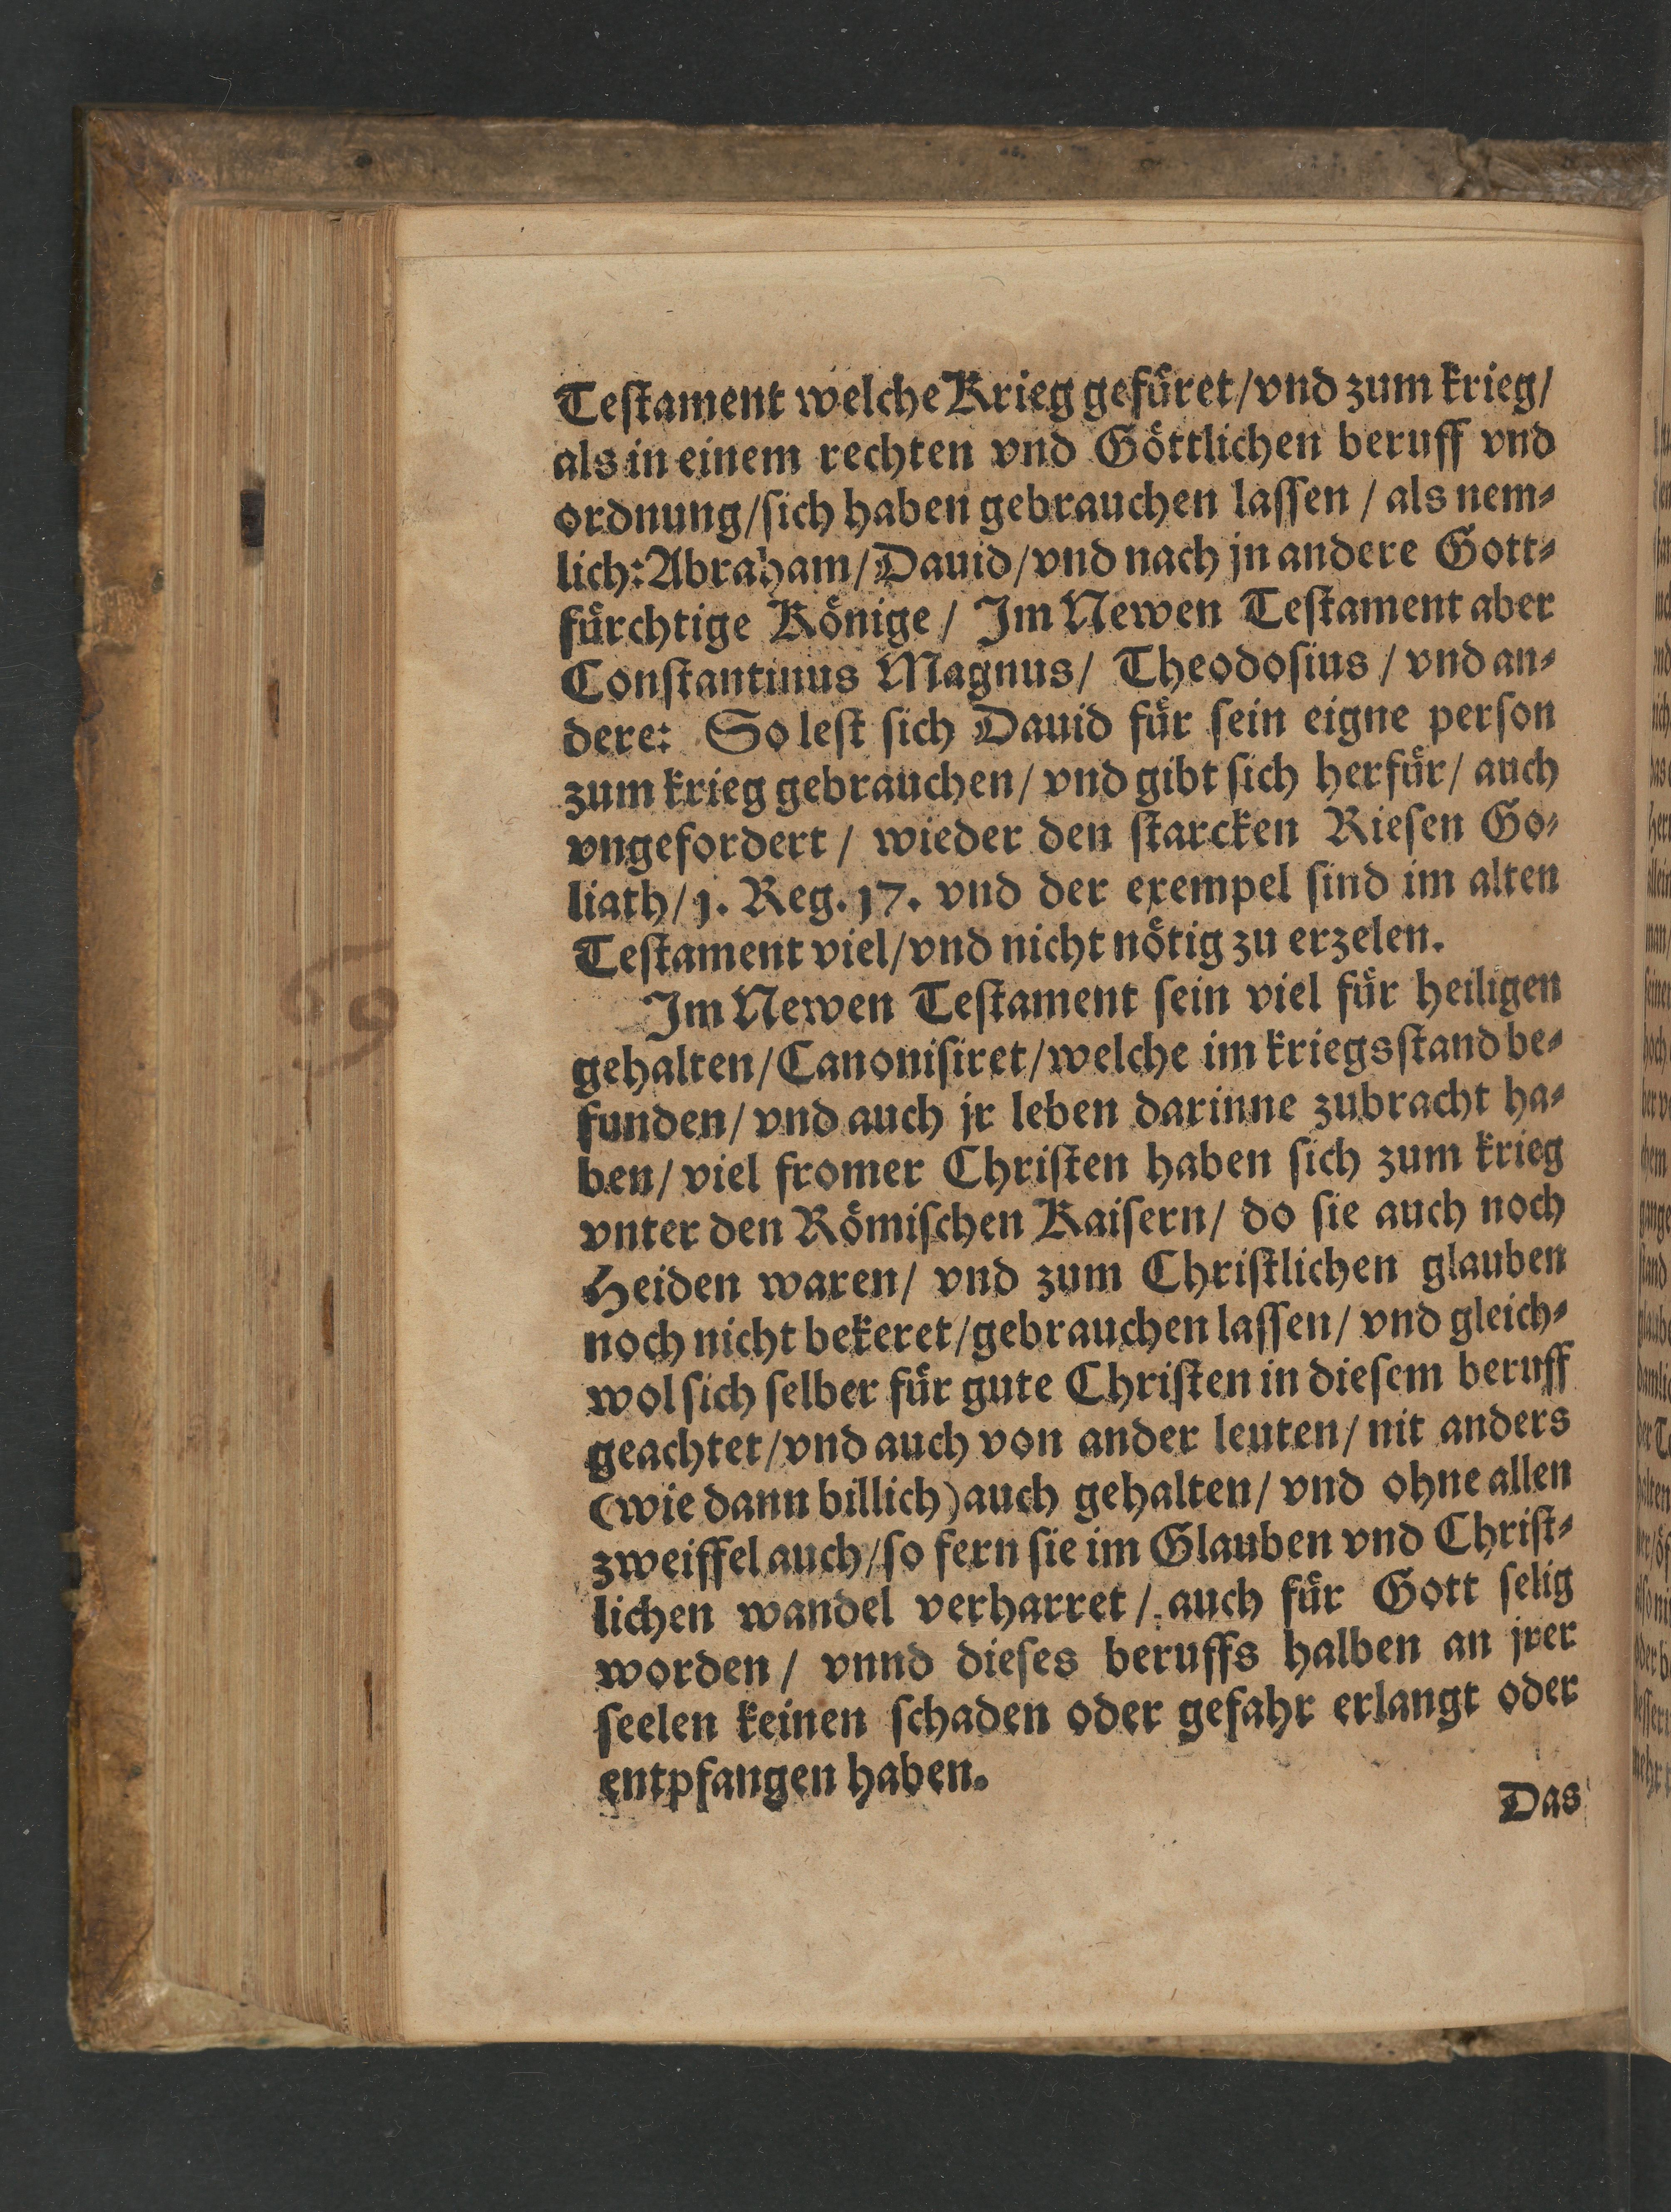 Teſtament welche Krieg gefuͤret/vnd zum krieg/
als in einem rechten vnd Goͤttlichen beruff vnd
ordnung/ſich haben gebrauchen laſſen / als nem⸗
lich: Abraham/Dauid/vnd nach jn andere Gott⸗
fuͤrchtige Koͤnige / Im Newen Teſtament aber
Conſtantinus Magnus/ Theodoſius / vnd an⸗
dere: So leſt ſich Dauid fuͤr ſein eigne perſon
zum krieg gebrauchen/ vnd gibt ſich herfuͤr/ auch
vngefordert / wieder den ſtarcken Rieſen Go⸗
liath/1. Reg. 17. vnd der exempel ſind im alten
Teſtament viel/vnd nicht noͤtig zu erzelen.
Im Newen Teſtament ſein viel fuͤr heiligen
gehalten/Canoniſiret/welche im kriegsſtand be⸗
funden/ vnd auch jr leben darinne zubracht ha⸗
ben/ viel fromer Chriſten haben ſich zum krieg
vnter den Roͤmiſchen Kaiſern/ do ſie auch noch
Heiden waren/ vnd zum Chriſtlichen glauben
noch nicht bekeret/gebrauchen laſſen/ vnd gleich⸗
wol ſich ſelber fuͤr gute Chriſten in dieſem beruff
geachtet/vnd auch von ander leuten/ nit anders
(wie dann billich) auch gehalten/ vnd ohne allen
zweiffel auch/ſo fern ſie im Glauben vnd Chriſt⸗
lichen wandel verharret / auch fuͤr Gott ſelig
worden / vnnd dieſes beruffs halben an jrer
ſeelen keinen ſchaden oder gefahr erlangt oder
entpfangen haben.
Das